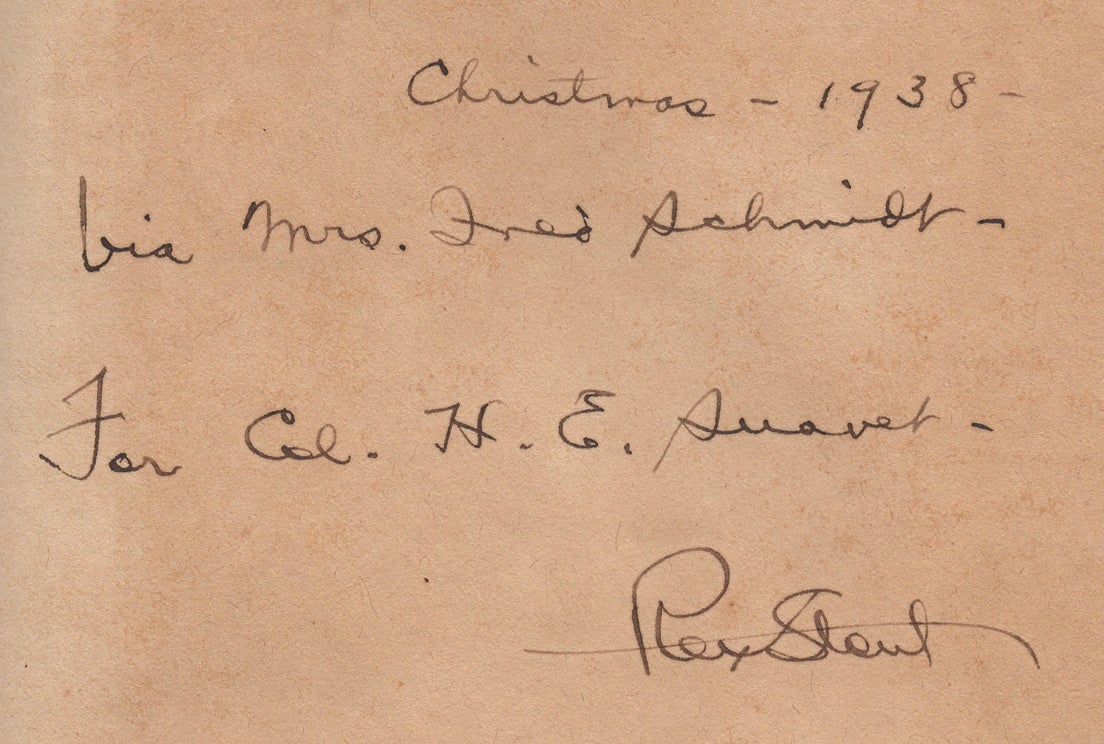 Christmas - 1938 -
Via Mrs. Fred Schmidt -
For Col. H. E. Suavet -
Rex Stout